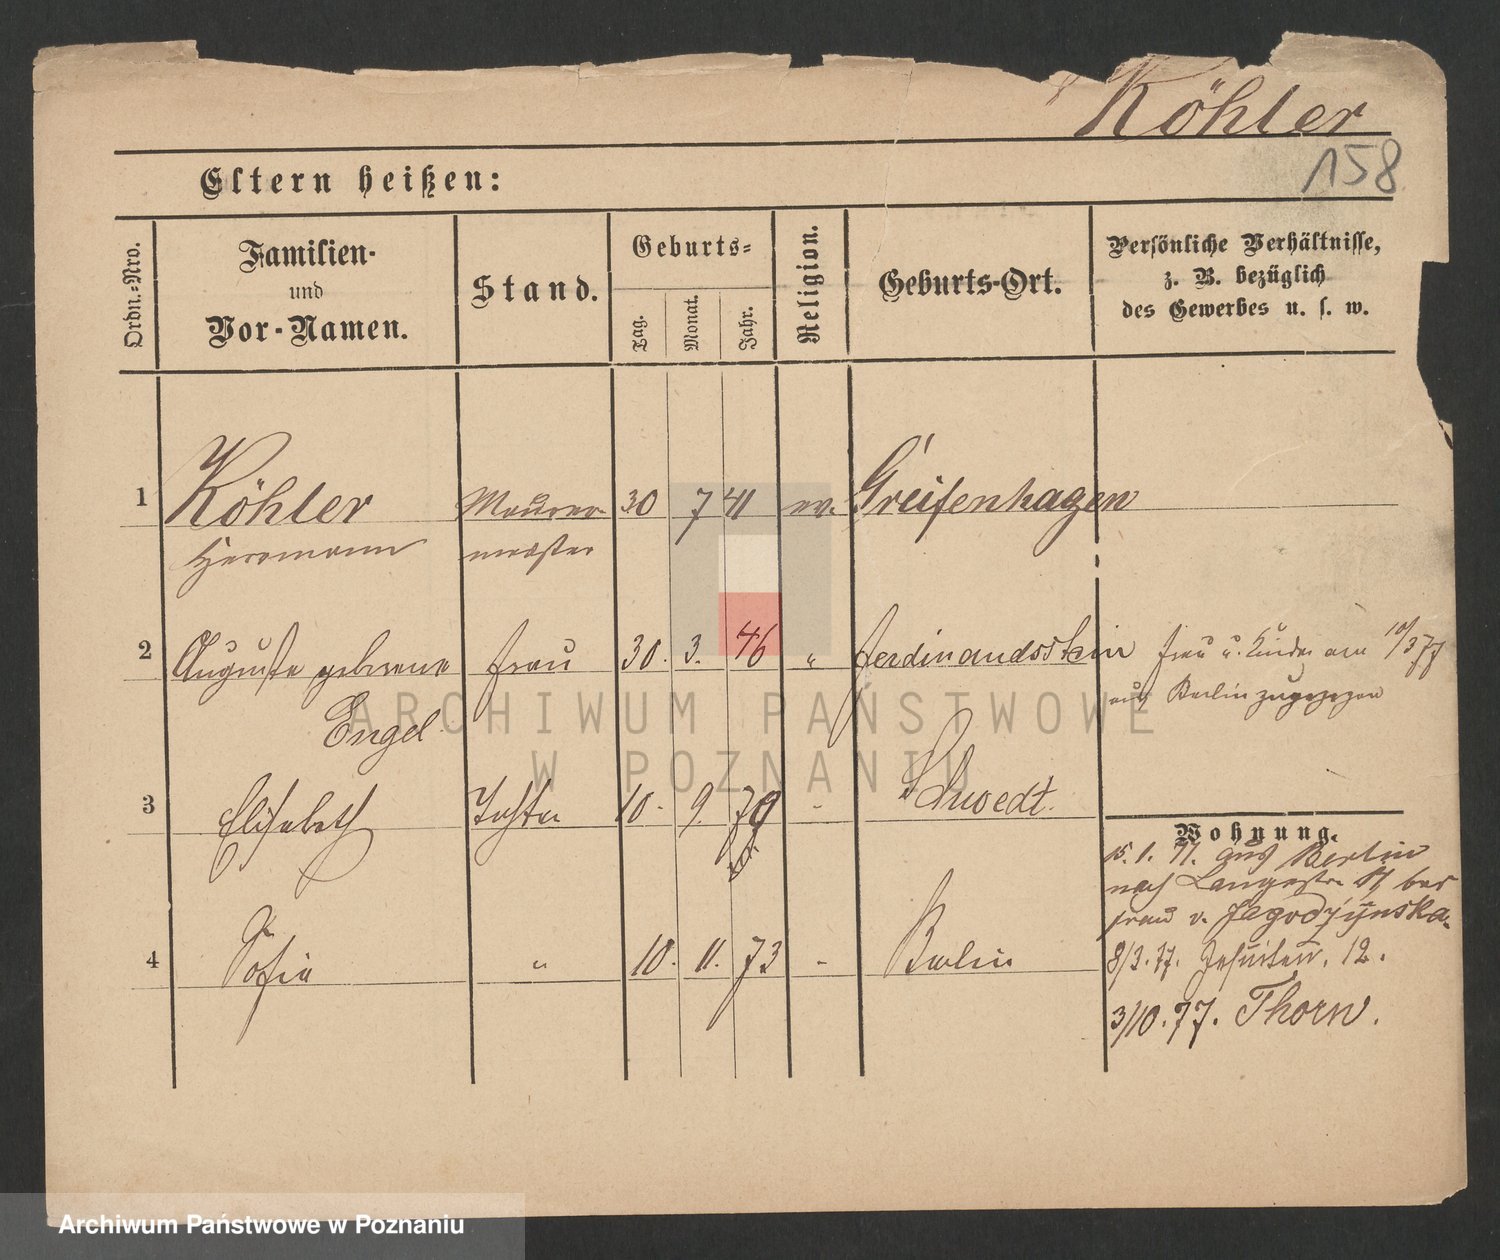 Köhler
158
Eltern heißen:
Ordn.-Nro.
Familien-
und
Vor-Namen.
Stand.
Geburts-
Tag.
Monat.
Jahr.
Religion.
Geburts-Ort.
Persönliche Verhältnisse,
z. B. bezüglich
des Gewerbes u. s. w.
1 Köhler Maurer 30 7 41 ev. Greifenhagen
Herrmann meister
2 Auguste geborene Frau 30. 3. 46 " Ferdinandsstein Frau u. Kinder am 10/3 77
Engel aus Berlin zugezogen
3 Elisabeth Tochter 10. 9. 70 - Schwedt.
Wohnung.
15. 1. 77. aus Berlin
nach Langestr. bei
Frau v. Jagodzynska.
4 Sofie " 10. 11. 73 - Berlin
8/3. 77. Jesuitenstr. 12.
3/10. 77. Thorn.
ARCHIWUM PAŃSTWOWE
W POZNANIU
Archiwum Państwowe w Poznaniu